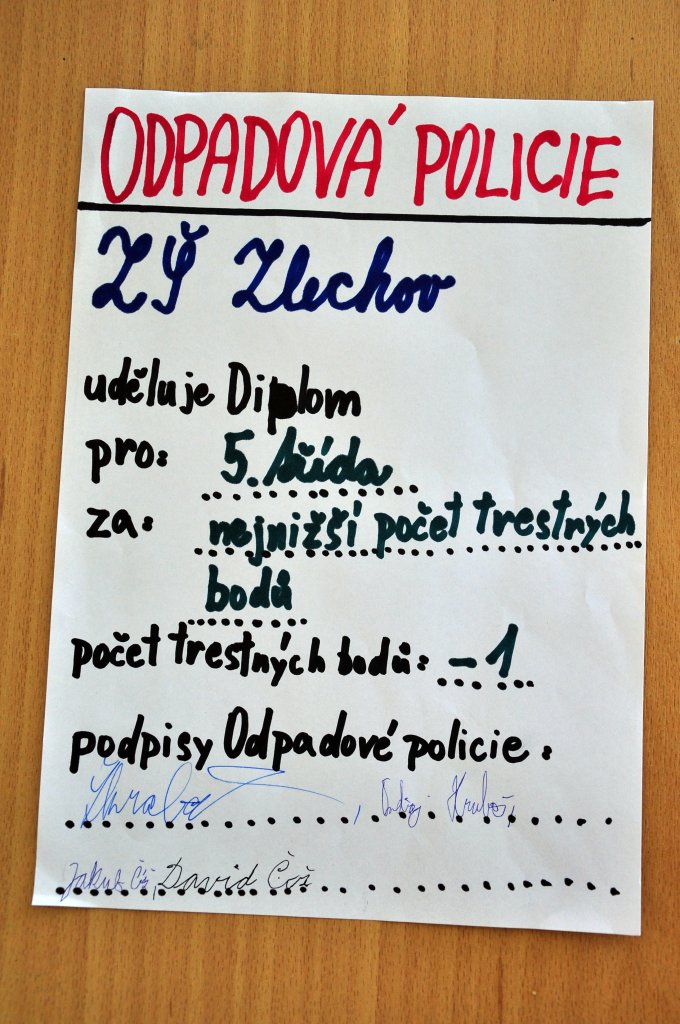 ODPADOVÁ POLICIE
ZŠ Zlechov
uděluje Diplom
pro: 5. třída
za: nejnižší počet trestných
bodů
počet trestných bodů: -1
podpisy Odpadové policie:
David Čoš